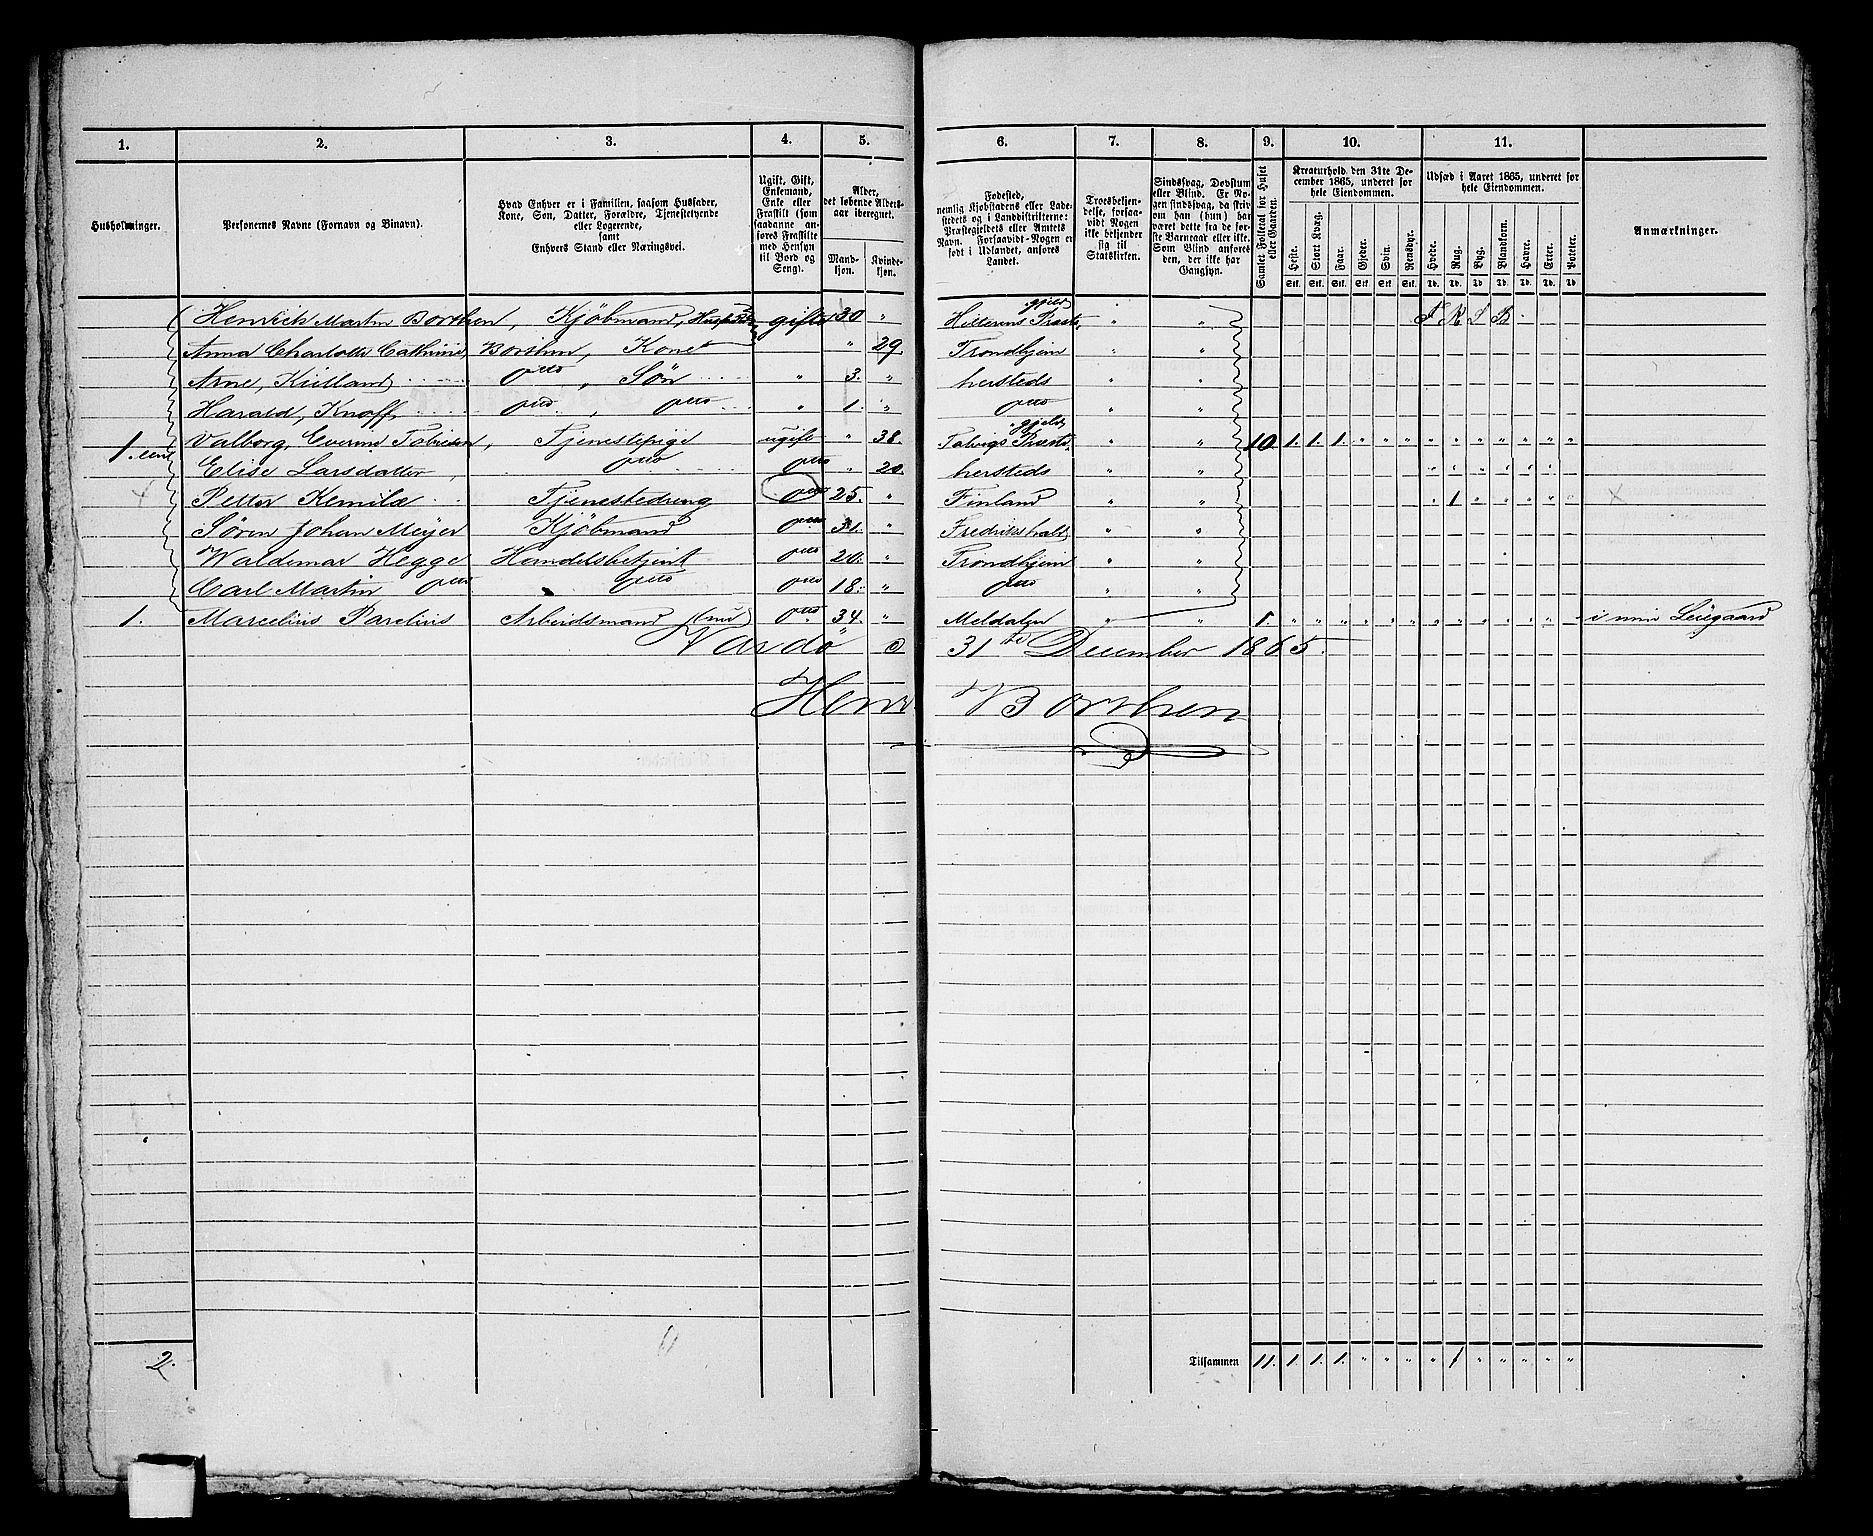 1. 2. 3. 4. 5. 6. 7. 8. 9. 10. 11.
Husholdninger.
Personernes Navne (Fornavn og Binavn).
Hvad Enhver er i Familien, saasom Husfader,
Kone, Søn, Datter, Forældre, Tjenestetyende
eller Logerende,
samt
Enhvers Stand eller Næringsvei.
Ugift, Gift,
Enkemand,
Enke eller
Fraskilt (som
saadanne an-
føres Fraskilte
med Hensyn
til Bord og
Seng).
Alder,
det løbende Alders-
aar iberegnet.
Mand-
kjøn.
Kvinde-
kjøn.
Fødested,
nemlig Kjøbstadens eller Lade-
stedets og i Landdistrikterne:
Præstegjeldets eller Amtets
Navn. Forsaavidt Nogen er
født i Udlandet, anføres
Landet.
Troesbekjen-
delse, forsaa-
vidt Nogen
ikke bekjender
sig til
Statskirken.
Sindssvag, Døvstum
eller Blind. Er No-
gen sindssvag, da skriv
om han (hun) har
været dette fra de før-
ste Barneaar eller ikke.
Som Blind anføres
den, der ikke har
Gangsyn.
Samlet Folketal for Huset
eller Gaarden.
Kreaturhold den 31te De-
cember 1865, underet for
hele Eiendommen.
Heste. Stort Kvæg. Faar. Gjeder. Svin. Rensdyr.
Stk. Stk. Stk. Stk. Stk. Stk.
Udsæd i Aaret 1865, underet for
hele Eiendommen.
Hvede. Rug. Byg. Blandkorn. Havre. Erter. Poteter.
Td. Td. Td. Td. Td. Td. Td.
Anmærkninger.
Henrich Martin Borthen, Kjøbmand, gift 30 " Hitterens Præstegjeld, " "
Anna Charlotte Cathrine Borthen, Kone " 29. Trondhjem " "
Arne, Kielland Do, Søn " 3. " hersteds " "
Harald, Knoff, Do, Do " 1. " Do " "
1. Valborg, Everine Tobiesen, Tjenestepige ugift " 38. Talvigs Præstegjeld, " " 10 1. 1. 1. " " " " " " " " " "
Elise Larsdatter, Do Do " 20. hersteds " "
Petter Kemilæ Tjenestedreng Do 25. " Finland " " 1 x
Søren Johan Meyer Kjøbmand Do 31. " Fredrikshald " "
Waldemar Hegge Handelsbetjent Do 20. " Trondhjem " "
Carl Martin Do Do Do 18. " Do " "
1. Marcelius Parelius Arbeidsmand Do 34. " Meldalen " " 1. " " " " " " " " " " " " " i min Leiegaard
Vardø 31te December 1865.
Henr. Borthen
2. Tilsammen 11. 1. 1. 1. " " " " 1 " " " " "